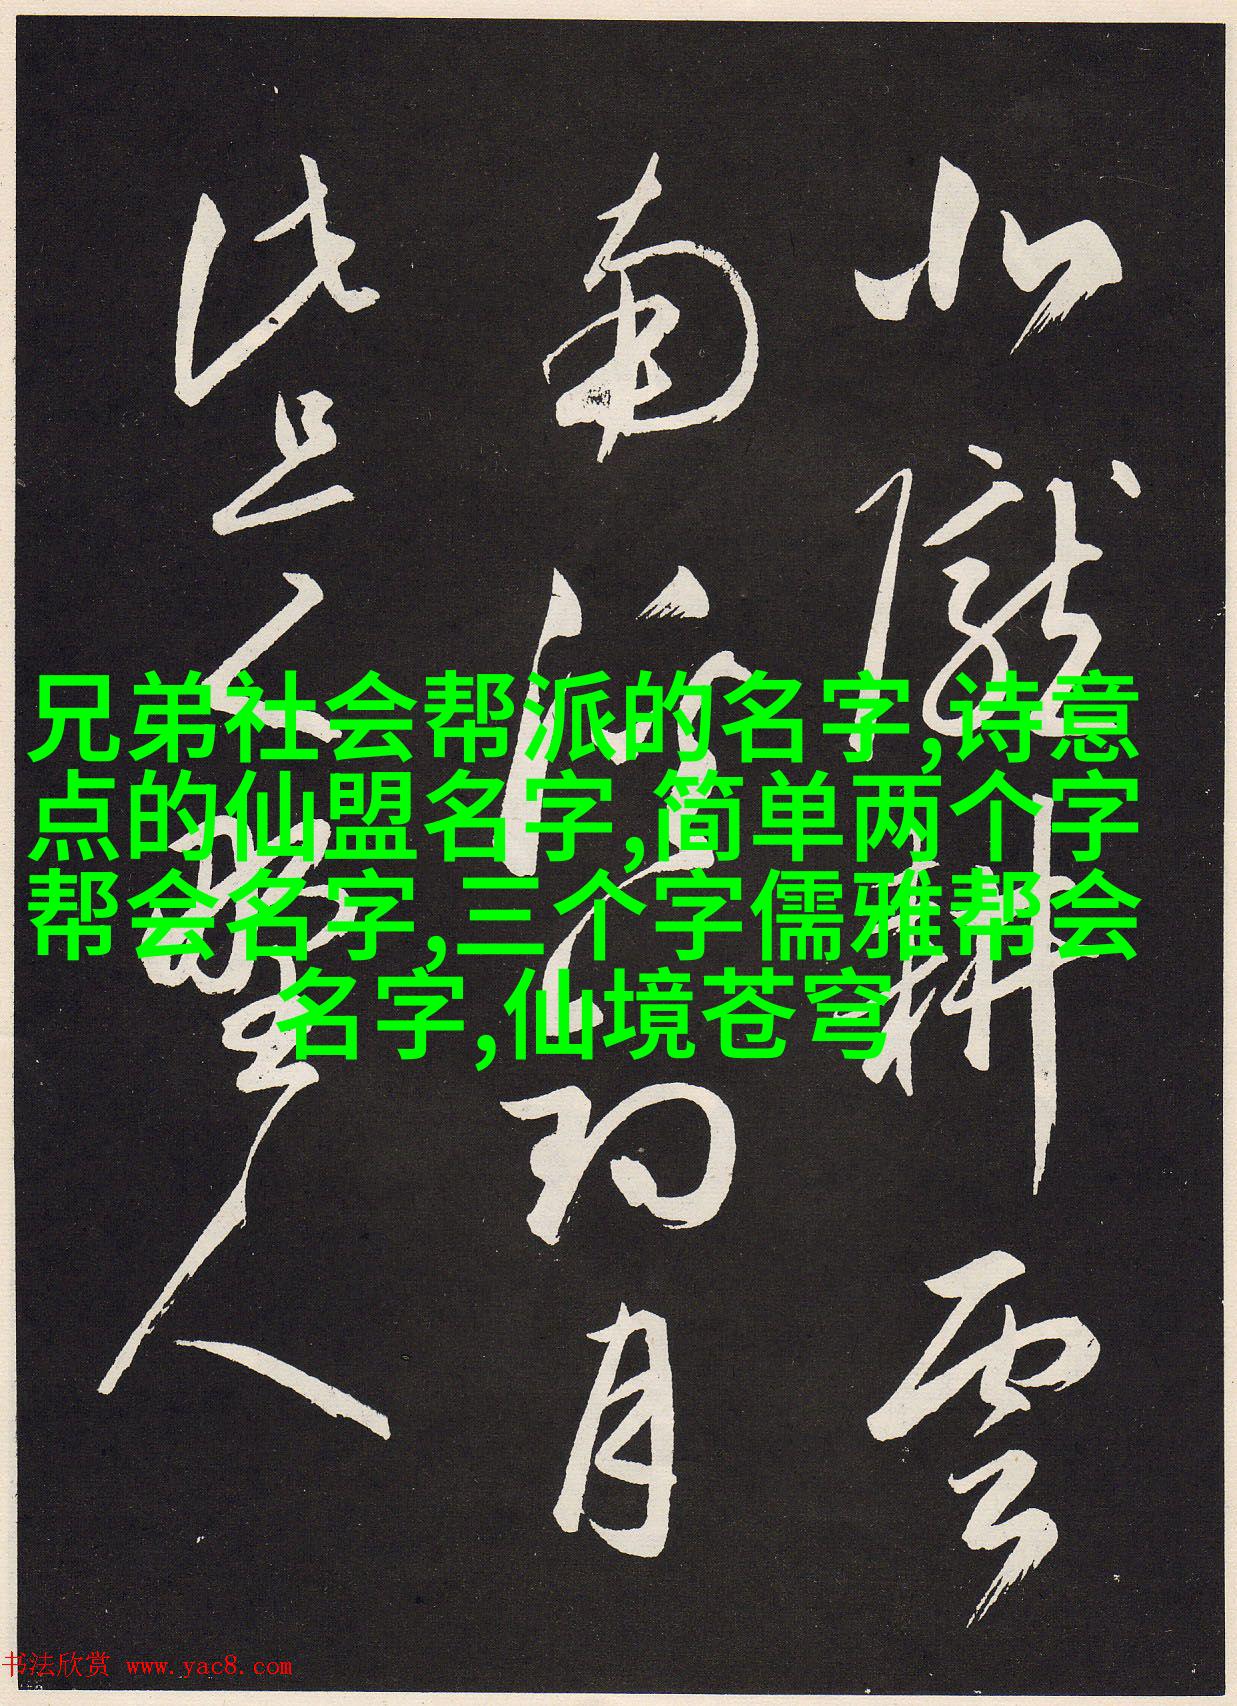 北隴耕雲
南溪釣月
此是野人
兄弟社会帮派的名字,诗意
点的仙盟名字,简单两个字
帮会名字,三个字儒雅帮会
名字,仙境苍穹
书法欣赏 www.yac8.com